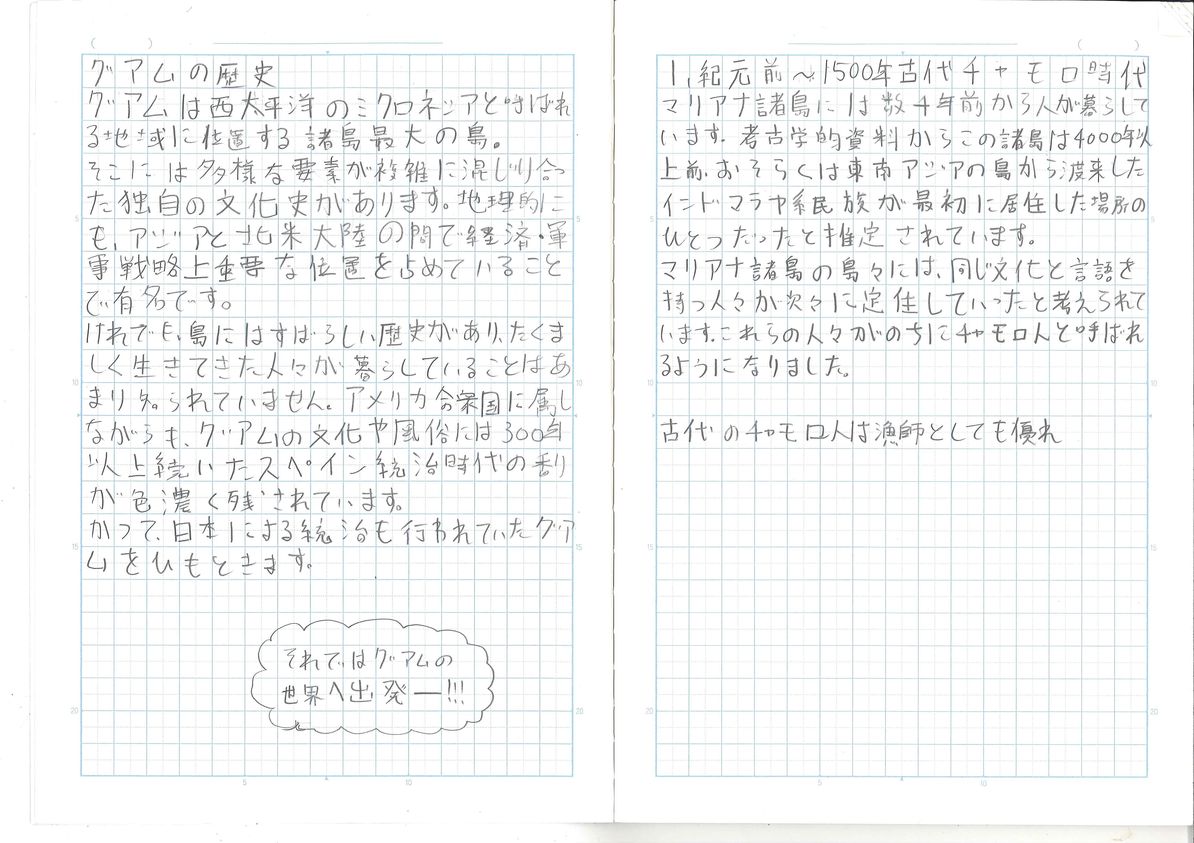 グアムの歴史
グアムは西太平洋のミクロネシアと呼ばれ
る地域に位置する諸島最大の島。
そこには多様な要素が複雑に混じり合っ
た独自の文化史があります。地理的に
も、アジアと北米大陸の間で経済・軍
軍戦略上重要な位置を占めていること
で有名です。
けれども、島にはすばらしい歴史があり、たくま
しく生きてきた人々が暮らしていることはあ
まり知られていません。アメリカ合衆国に属し
ながらも、グアムの文化や風俗には300年
以上続いたスペイン統治時代の香り
が色濃く残されています。
かつて、日本による統治も行われていたグア
ムをひもときます。
それではグアムの
世界へ出発ー!!!
1, 紀元前〜1500年古代チャモロ時代
マリアナ諸島には数千年前から人が暮らして
います。考古学的資料からこの諸島は4000年以
上前、おそらくは東南アジアの島から渡来した
インドマラヤ系民族が最初に居住した場所の
ひとつだったと推定されています。
マリアナ諸島の島々には、同じ文化と言語を
持つ人々が次々に定住していったと考えられて
います。これらの人々がのちにチャモロ人と呼ばれ
るようになりました。
古代のチャモロ人は漁師としても優れ
5
10
15
20
5
10
5
10
15
20
5
10